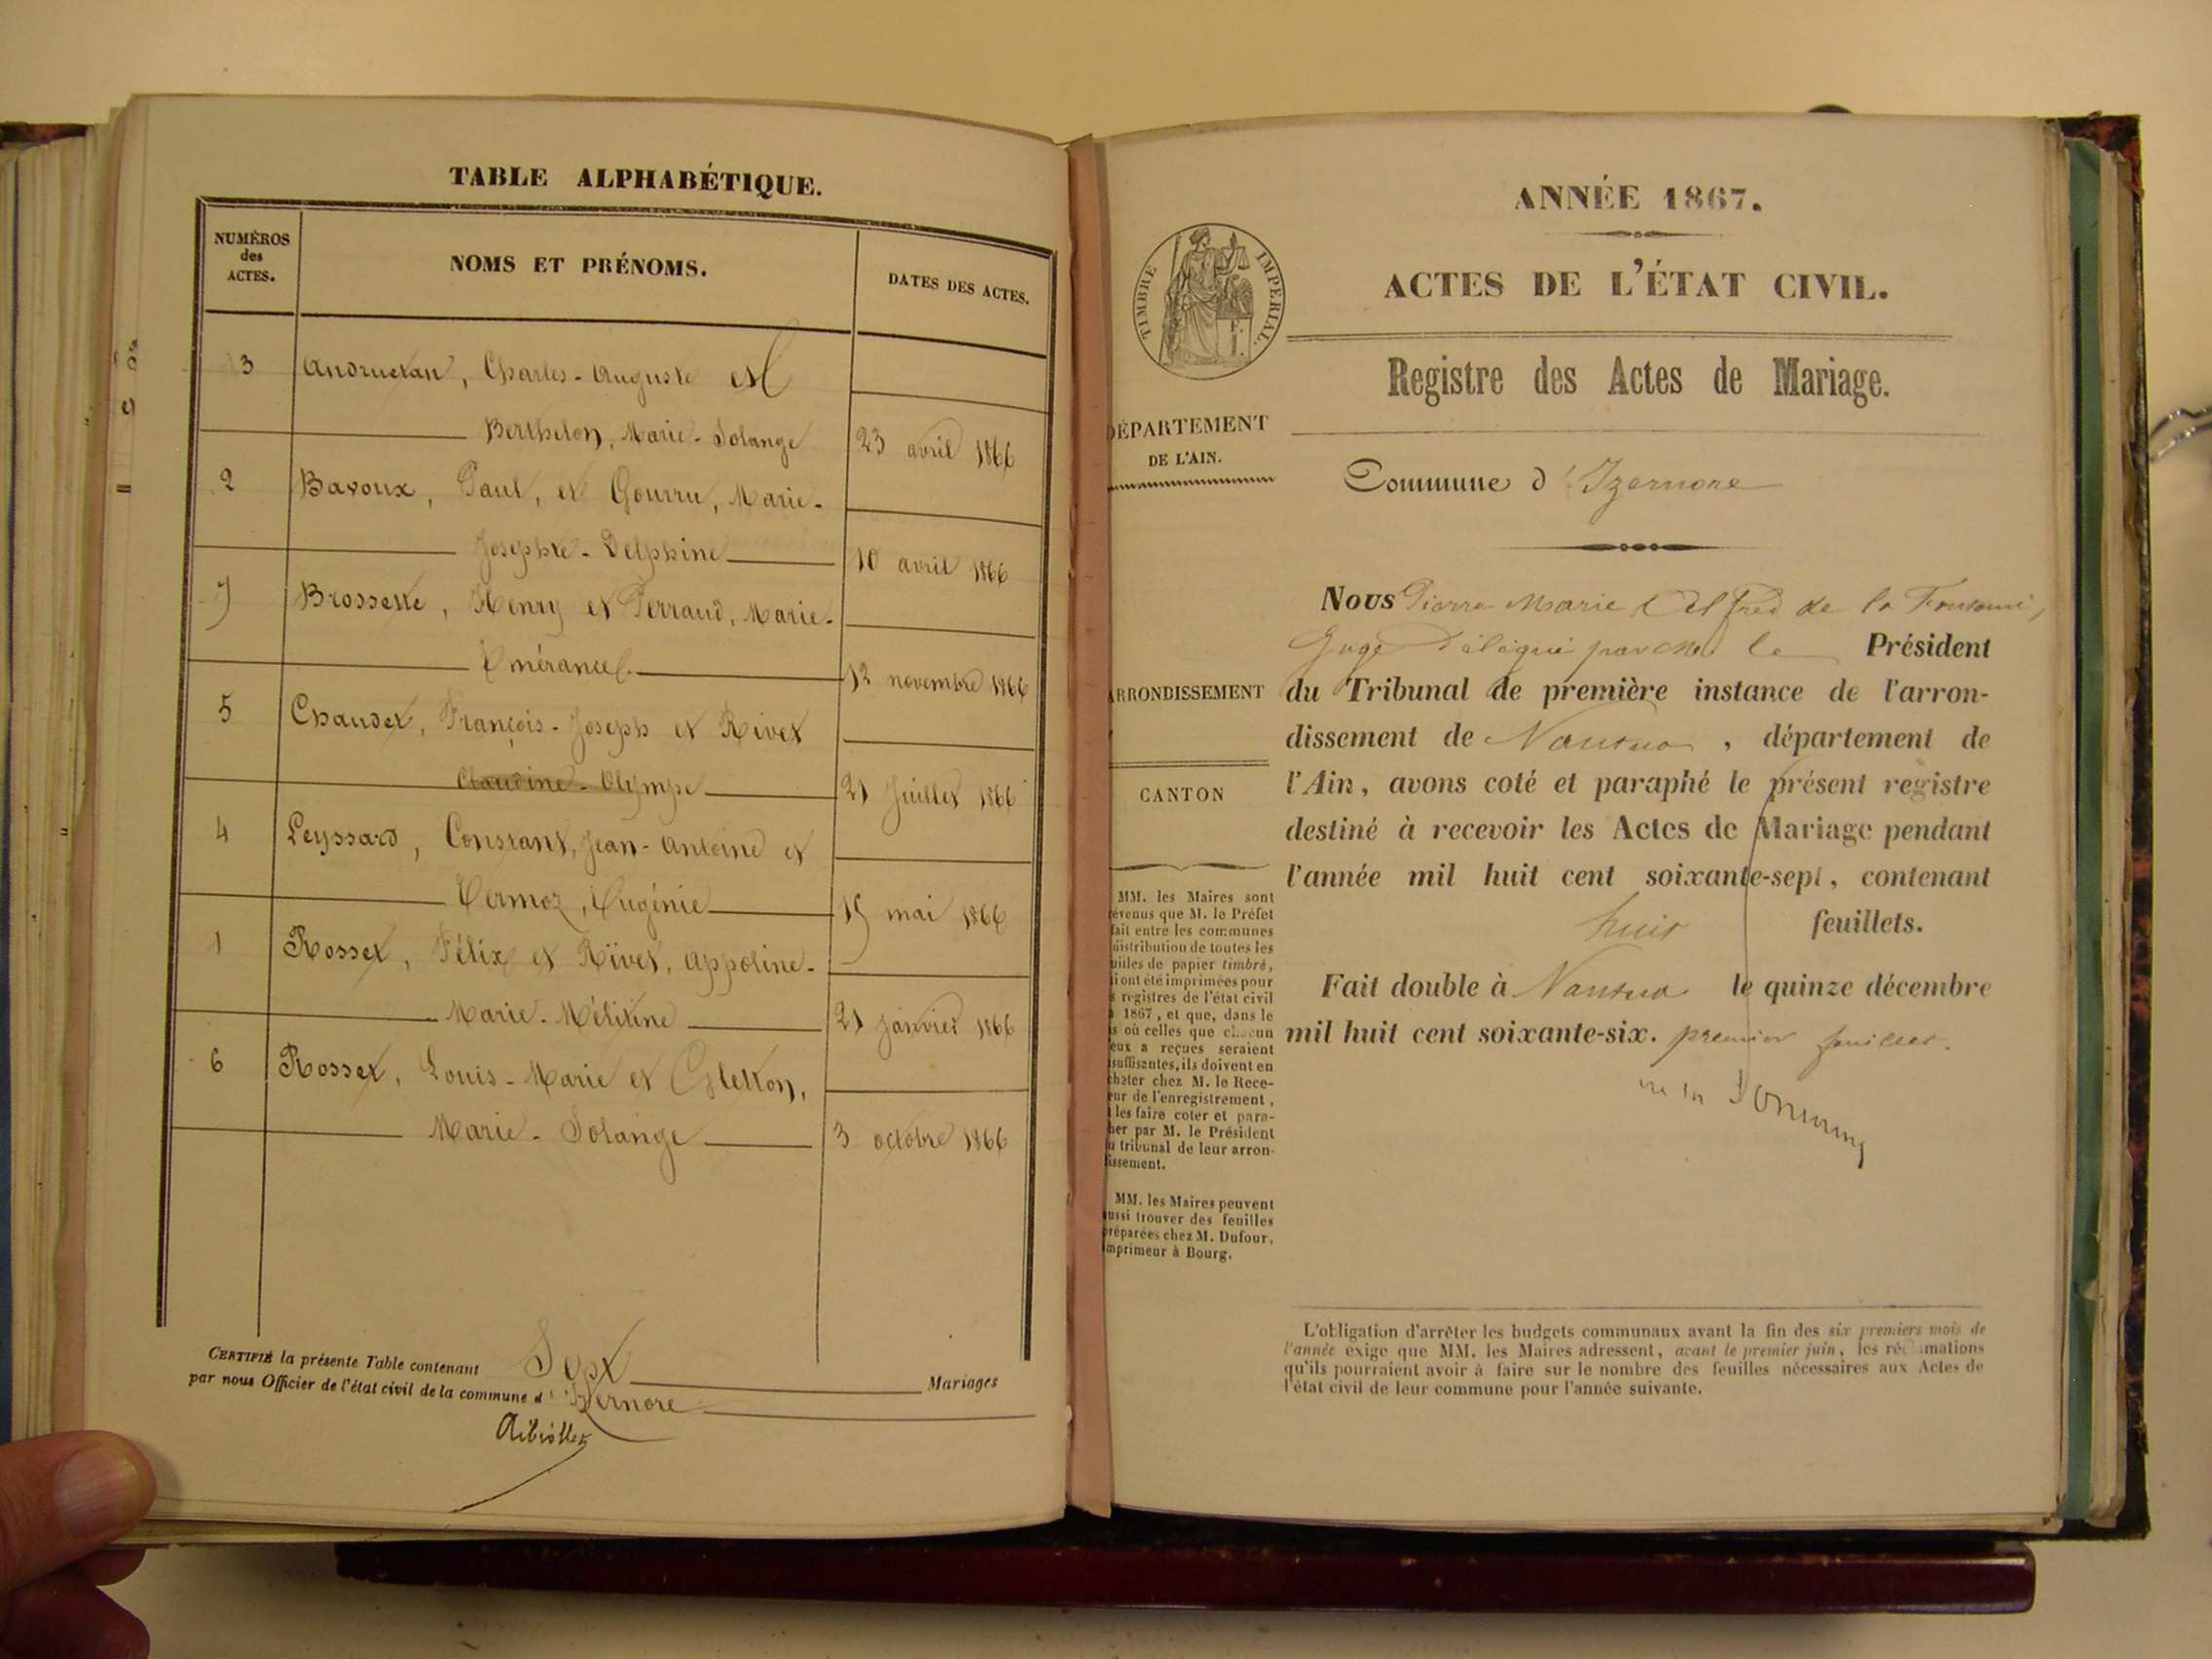 TABLE ALPHABÉTIQUE.
NUMÉROS
des
ACTES.
NOMS ET PRÉNOMS.
DATES DES ACTES.
3 Andruetan, Charles-Auguste et
Berthelon, Marie-Solange 23 avril 1866
2 Bavoux, Paul, et Gourru, Marie-
Josephte-Delphine 10 avril 1866
7 Brossette, Henry et Perraud, Marie-
Émérance 12 novembre 1866
5 Chaudet, François-Joseph et Rivet
Claudine-Olympe 21 Juillet 1866
4 Leyssard, Constant, Jean-Antoine et
Vermoz, Eugénie 15 mai 1866
1 Rosset, Félix et Rivet, Appoline-
Marie-Mélitine 21 janvier 1866
6 Rosset, Louis-Marie et Gletton,
Marie-Solange 3 octobre 1866
CERTIFIÉ la présente Table contenant Sept Mariages
par nous Officier de l'état civil de la commune d'Izernore
ANNÉE 1867.
ACTES DE L'ÉTAT CIVIL.
TIMBRE IMPÉRIAL.
Registre des Actes de Mariage.
DÉPARTEMENT
DE L'AIN.
Commune d'Izernore
Nous Pierre Marie Alfred de la
Juge délégué par Mr le Président
ARRONDISSEMENT
du Tribunal de première instance de l'arron-
dissement de Nantua, département de
l'Ain, avons coté et paraphé le présent registre
CANTON
destiné à recevoir les Actes de Mariage pendant
l'année mil huit cent soixante-sept, contenant
huit feuillets.
Fait double à Nantua le quinze décembre
mil huit cent soixante-six. premier feuillet.
MM. les Maires sont
évenus que M. le Préfet
fait entre les communes
distribution de toutes les
uilles de papier timbré,
i ont été imprimées pour
s registres de l'état civil
1867, et que, dans le
s où celles que chacun
eux a reçues seraient
suffisantes, ils doivent en
cheter chez M. le Rece-
eur de l'enregistrement,
les faire coter et para-
her par M. le Président
u tribunal de leur arron-
issement.
MM. les Maires peuvent
ussi trouver des feuilles
préparées chez M. Dufour,
mprimeur à Bourg.
L'obligation d'arrêter les budgets communaux avant la fin des six premiers mois de
l'année exige que MM. les Maires adressent, avant le premier juin, les réclamations
qu'ils pourraient avoir à faire sur le nombre des feuilles nécessaires aux Actes de
l'état civil de leur commune pour l'année suivante.